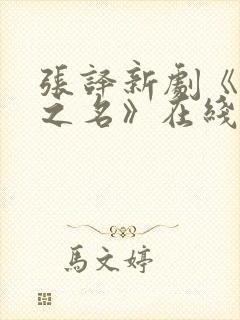 張譯新劇《
之名》在綫
馬文婷